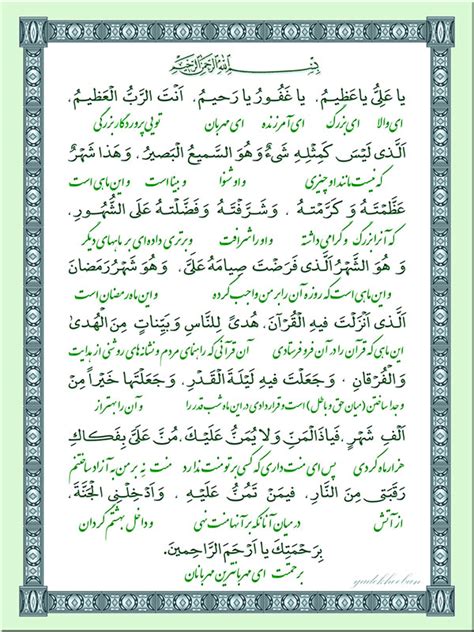 بِسْمِ اللهِ الرَّحْمٰنِ الرَّحِیْمِ
یا عَلِیُّ یا عَظِیمُ، یا غَفُورُ یا رَحیمُ، اَنْتَ الرَّبُّ الْعَظیمُ،
ای والا ای بزرگ ای آمرزنده ای مهربان تویی پروردگار بزرگی
اَلَّذی لَیْسَ کَمِثْلِهِ شَیءٌ وَ هُوَ السَّمیعُ الْبَصیرُ، وَ هٰذا شَهْرٌ
که نیست مانند او چیزی و او شنوا و بینا است و این ماهی است
عَظَّمْتَهُ وَ کَرَّمْتَهُ، وَ شَرَّفْتَهُ وَ فَضَّلْتَهُ عَلَی الشُّهُورِ،
که آنرا بزرگ و گرامی داشته و او را شرافت و برتری داده ای بر ماههای دیگر
وَ هُوَ الشَّهْرُ الَّذی فَرَضْتَ صِیامَهُ عَلَیَّ، وَ هُوَ شَهْرُ رَمَضانَ
و این ماهی است که روزه آن را بر من واجب کرده و این ماه رمضان است
الَّذی اَنْزَلْتَ فیهِ الْقُرْآنَ، هُدیً لِلنّاسِ وَ بَیِّناتٍ مِنَ الْهُدیٰ
این ماهی که قرآن را در آن فرو فرستادی آن قرآنی که راهنمای مردم و نشانه های روشنی از هدایت
وَ الْفُرْقانِ، وَ جَعَلْتَ فیهِ لَیْلَةَ الْقَدْرِ، وَ جَعَلْتَها خَیْراً مِنْ
و جدا ساختن (میان حق و باطل) است و قرار دادی در این ماه شب قدر را و آن را بهتر از
اَلْفِ شَهْرٍ، فَیاذَاالْمَنِّ وَ لا یُمَنُّ عَلَیْكَ، مُنَّ عَلَیَّ بِفَکاكِ
هزار ماه کردی پس ای منت داری که کسی بر تو منت ندارد منت نه بر من به آزاد ساختنم
رَقَبَتی مِنَ النّارِ، فیمَنْ تَمُنُّ عَلَیْهِ، وَ اَدْخِلْنِی الْجَنَّةَ،
از آتش در میان آنانکه بر آنها منت نهی و داخل بهشتم گردان
بِرَحْمَتِكَ یا اَرْحَمَ الرّاحِمینَ.
برحمتت ای مهربانترین مهربانان